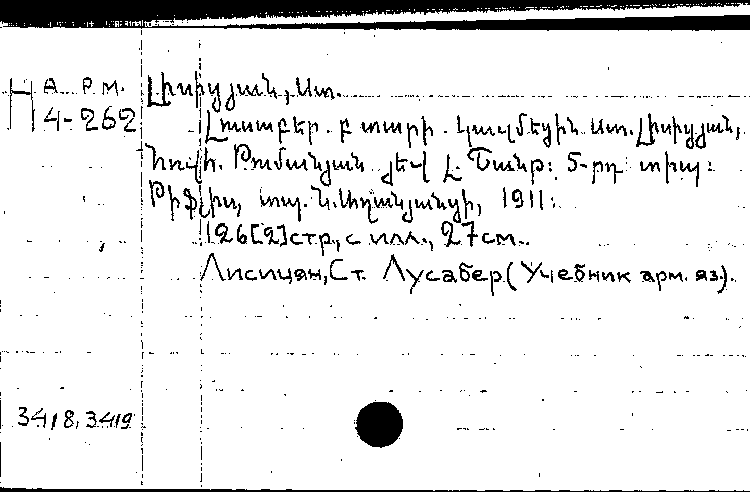 А Р.М.
Н 4-262
Լիսիցյան, Ստ.
Լուսաբեր. բ տարի. կազմեցին Ստ. Լիսիցյան,
Հովհ. Թումանյան և Լ. Շանթ: 5-րդ տիպ:
Թիֆլիս, տպ. Ն. Աղանյանցի, 1911:
126[2]стр, с илл., 27см.
Лисицян, Ст. Лусабер (Учебник арм. яз).
3418, 3419